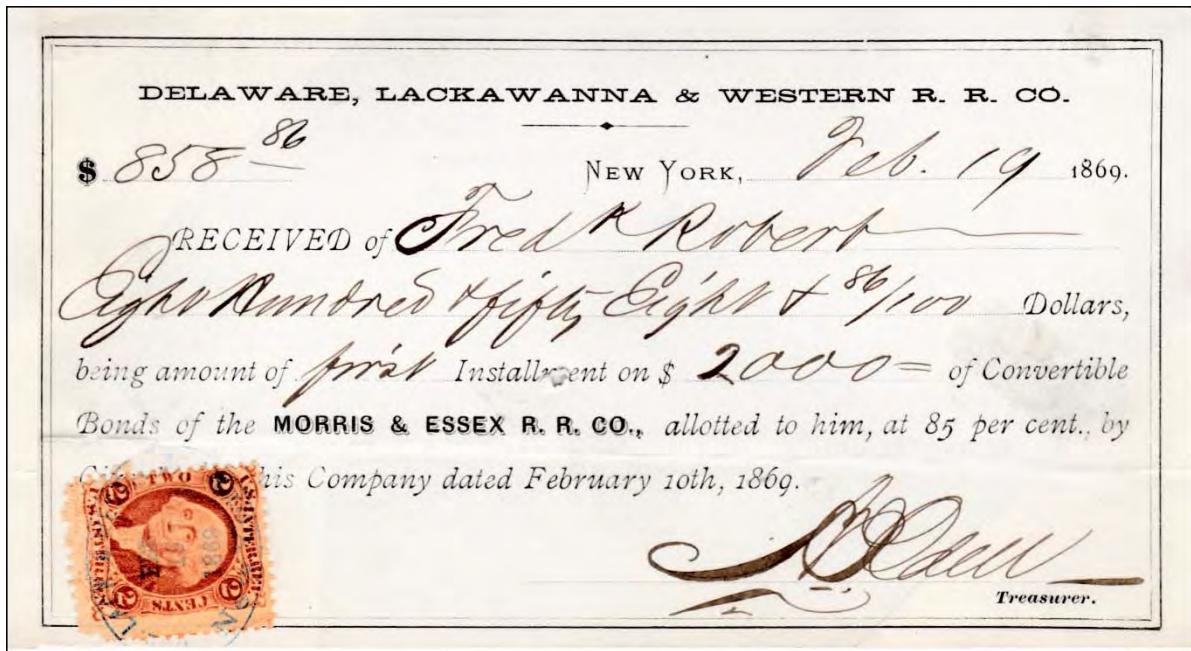 DELAWARE, LACKAWANNA & WESTERN R. R. CO.
$ 858 86
NEW YORK, Feb. 19 1869.
RECEIVED of Fredk Robert
Eight Hundred & fifty Eight & 86/100 Dollars,
being amount of first Installment on $ 2000= of Convertible
Bonds of the MORRIS & ESSEX R. R. CO., allotted to him, at 85 per cent., by
this Company dated February 10th, 1869.
Odell
Treasurer.
TWO
U.S. INTER. REV.
2 2
1869
2 2
CENTS